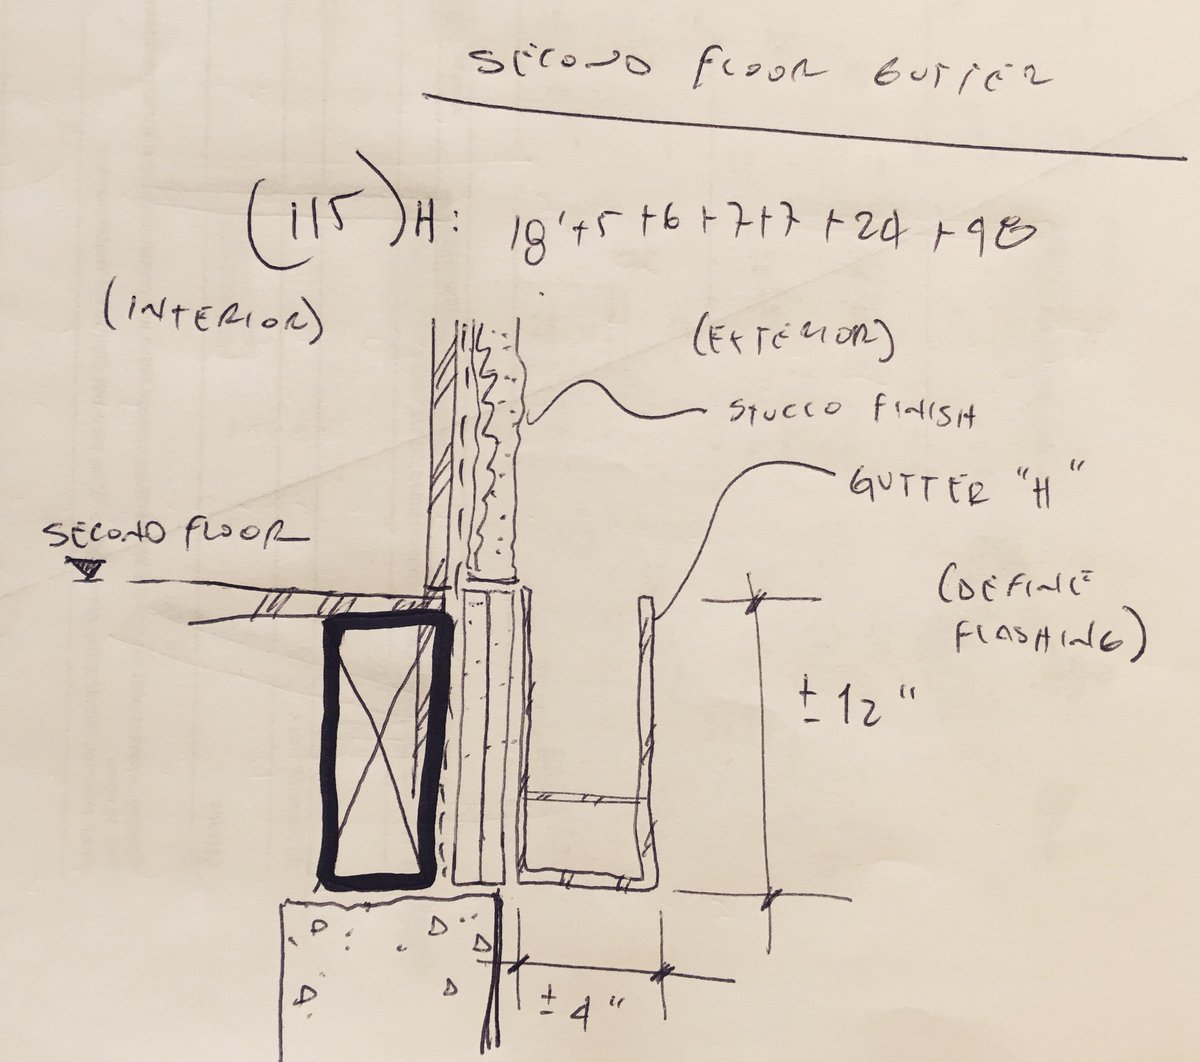 SECOND FLOOR GUTTER
(115) H: 18'+5+6+7+7+24+48
(INTERIOR)
(EXTERIOR)
STUCCO FINISH
GUTTER "H"
SECOND FLOOR
(DEFINE
FLASHING)
±12"
±4"